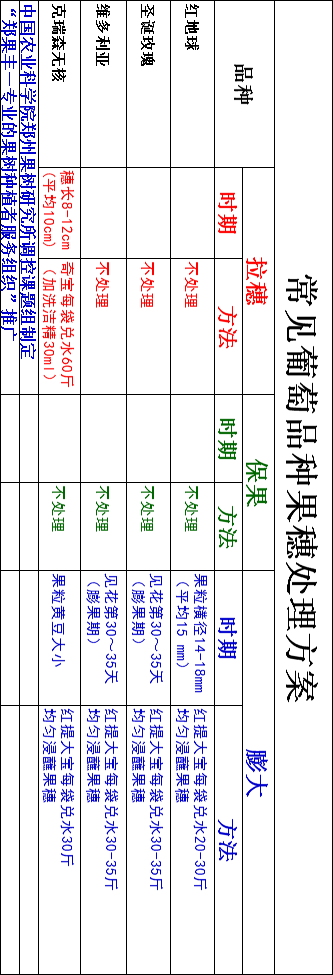 常见葡萄品种果穗处理方案
品种 拉穗 保果 膨大
时期 方法 时期 方法 时期 方法
红地球 不处理 不处理 果粒横径14-18mm 红提大宝每袋兑水20-30斤
(平均15 mm) 均匀浸蘸果穗
圣诞玫瑰 不处理 不处理 见花第30～35天 红提大宝每袋兑水30-35斤
(膨果期) 均匀浸蘸果穗
维多利亚 不处理 不处理 见花第30～35天 红提大宝每袋兑水30-35斤
(膨果期) 均匀浸蘸果穗
克瑞森无核 穗长8-12cm 奇宝每袋兑水60斤 不处理 果粒黄豆大小 红提大宝每袋兑水30斤
(平均10cm) (加洗洁精30ml) 均匀浸蘸果穗
中国农业科学院郑州果树研究所调控课题组制定
“郑果丰—专业的果树种植者服务组织”推广